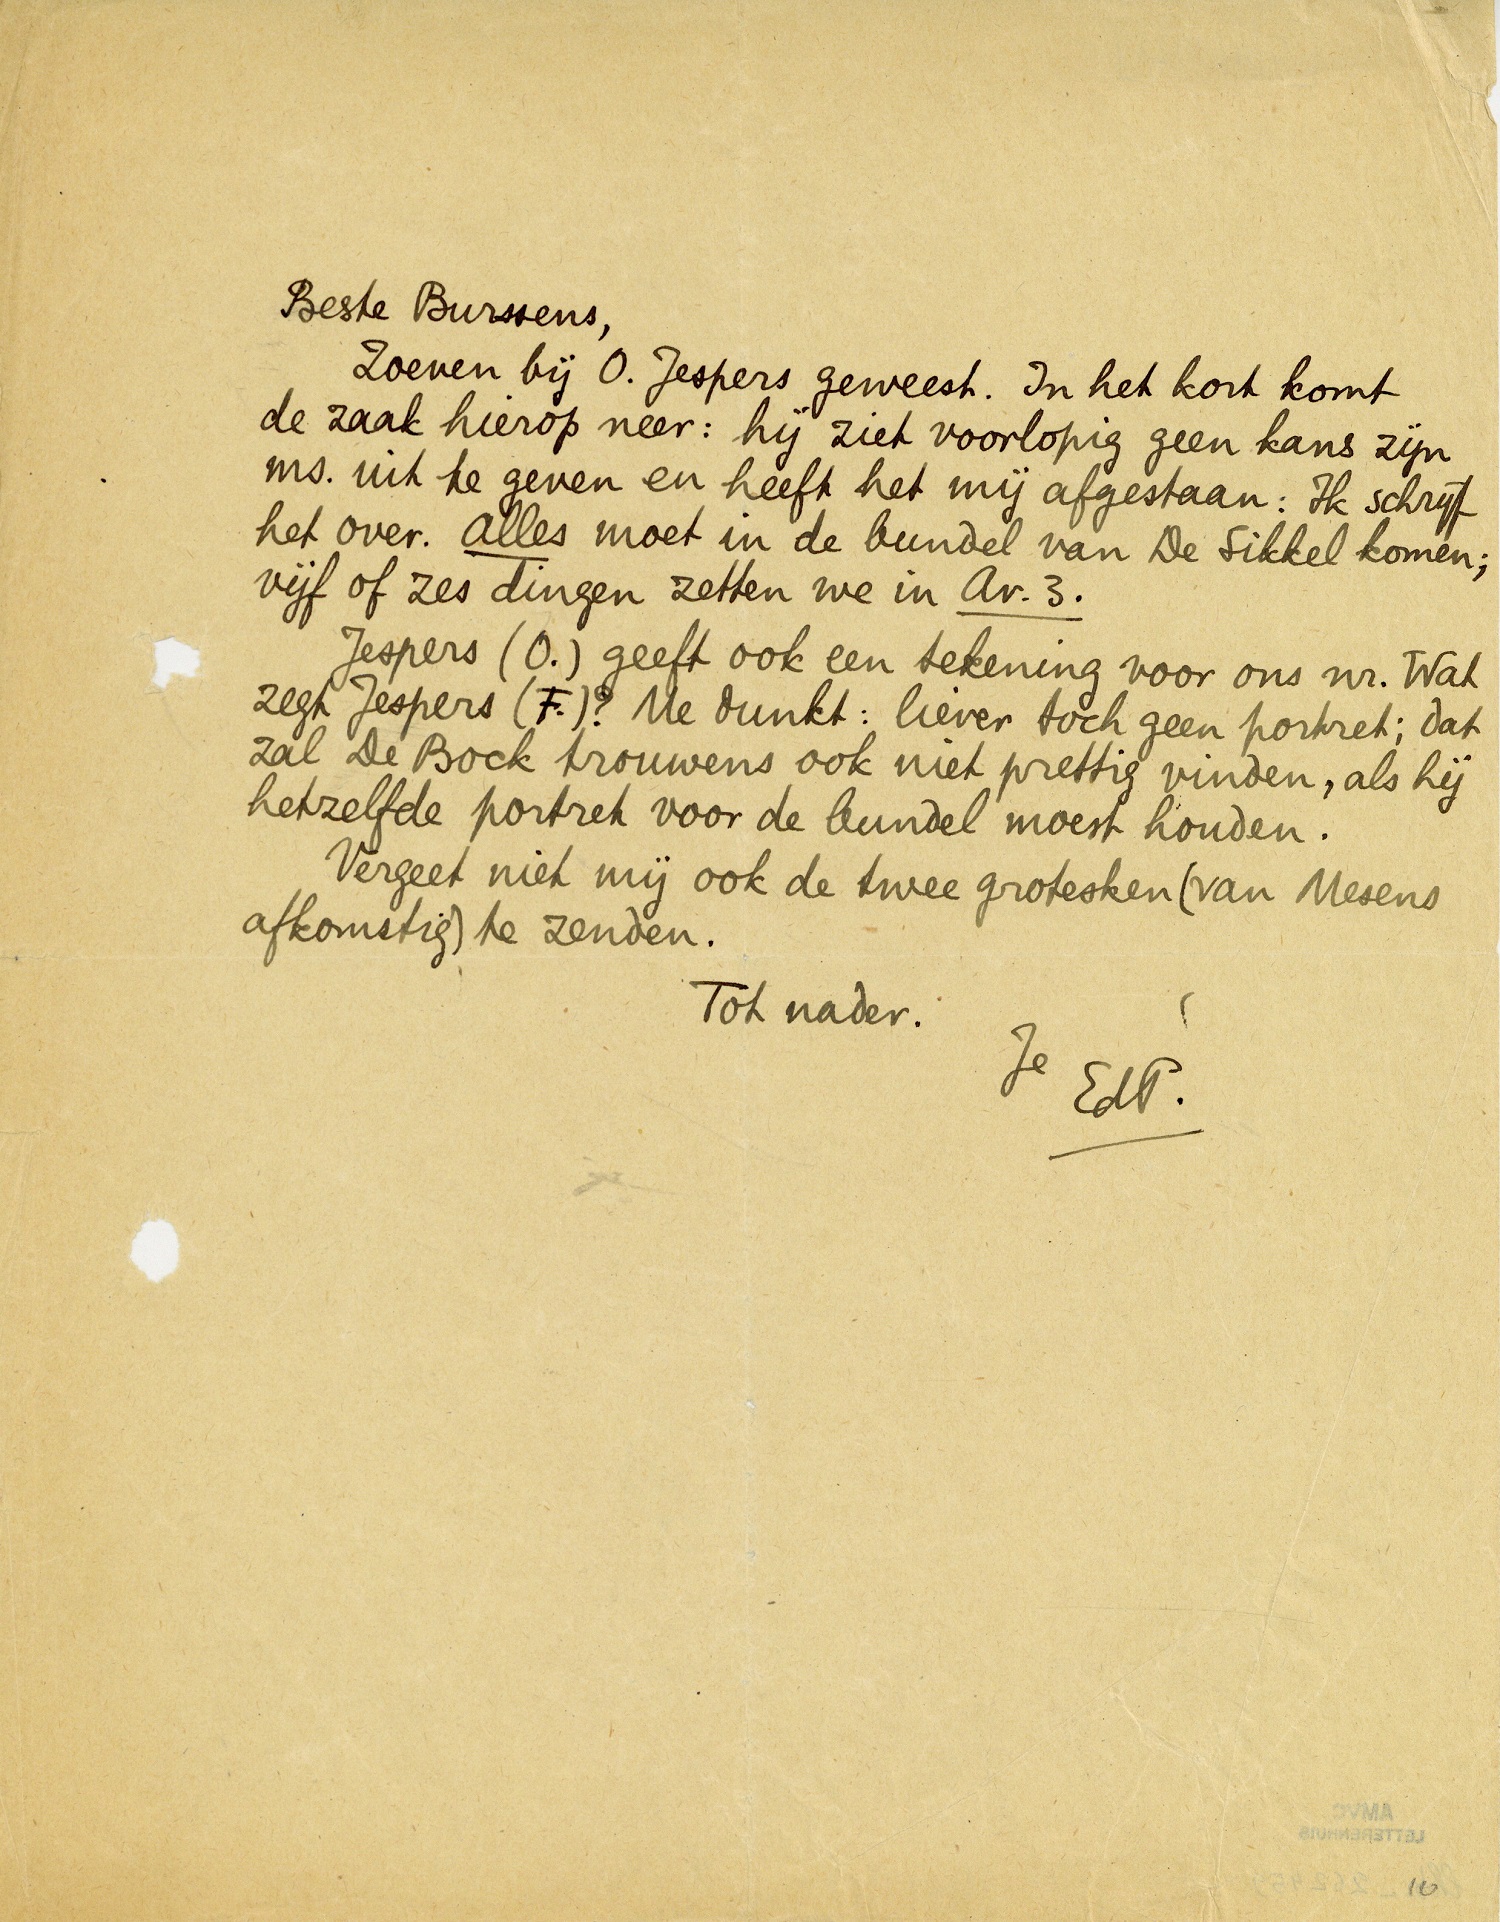 Beste Burssens,
Zoeven bij O. Jespers geweest. In het kort komt
de zaak hierop neer: hij ziet voorlopig geen kans zijn
ms. uit te geven en heeft het mij afgestaan: Ik schrijf
het over. Alles moet in de bundel van De Sikkel komen;
vijf of zes dingen zetten we in Av. 3.
Jespers (O.) geeft ook een tekening voor ons nr. Wat
zegt Jespers (F.)? Me dunkt: liever toch geen portret; dat
zal De Bock trouwens ook niet prettig vinden, als hij
hetzelfde portret voor de bundel moest houden.
Vergeet niet mij ook de twee grotesken (van Mesens
afkomstig) te zenden.
Tot nader.
Je
EdP.
AMVC
LETTERENHUIS